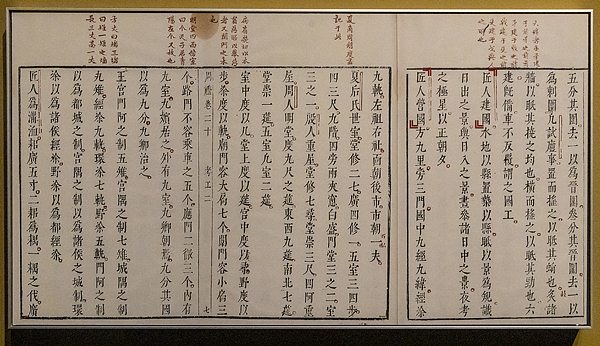 五分其圍去一以爲晉圍參分其晉圍去一以
爲刺圍凡試廬事置而搖之以眡其蜎也灸諸
牆以眡其橈之均也橫而搖之以眡其勁也六
建旣備車不反覆謂之國工
匠人建國水地以縣置槷以縣眡以景爲規識
日出之景與日入之景晝參諸日中之景夜考
之極星以正朝夕
匠人營國方九里旁三門國中九經九緯經涂
九軌左祖右社面朝後市市朝一夫
夏后氏世室堂修二七廣四修一五室三四步
四三尺九階四旁兩夾窻白盛門堂三之二室
三之一殷人重屋堂修七尋堂崇三尺四阿重
屋周人明堂度九尺之筵東西九筵南北七筵
堂崇一筵五室凡室二筵
室中度以几堂上度以筵宮中度以尋野度以
步涂度以軌廟門容大扃七个闈門容小扃三
周禮卷二十 考工二 七
个路門不容乘車之五个應門二徹三个內有
九室九嬪居之外有九室九卿朝焉九分其國
以爲九分九卿治之
王宮門阿之制五雉宮隅之制七雉城隅之制
九雉經涂九軌環涂七軌野涂五軌門阿之制
以爲都城之制宮隅之制以爲諸侯之城制環
涂以爲諸侯經涂野涂以爲都經涂
匠人爲溝洫耜廣五寸二耜爲耦一耦之伐廣